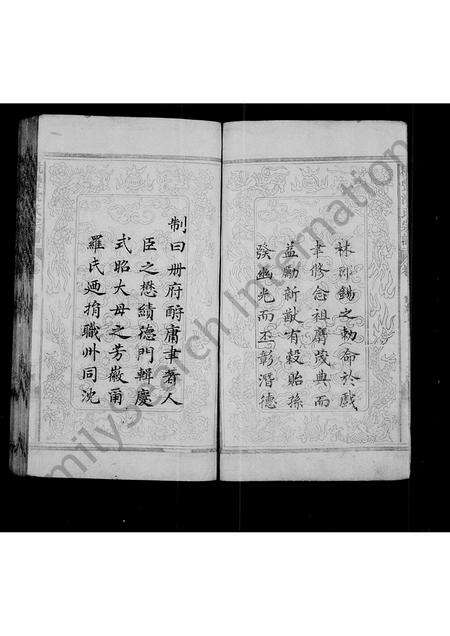 林郎錫之勅命於戲
聿脩念祖膺茂典而
益勵新猷有穀貽孫
發幽光而丕彰潛德
制曰冊府酧庸聿著人
臣之懋績德門輯慶
式昭大母之芳徽爾
羅氏廼捐職州同沈
milySearch International